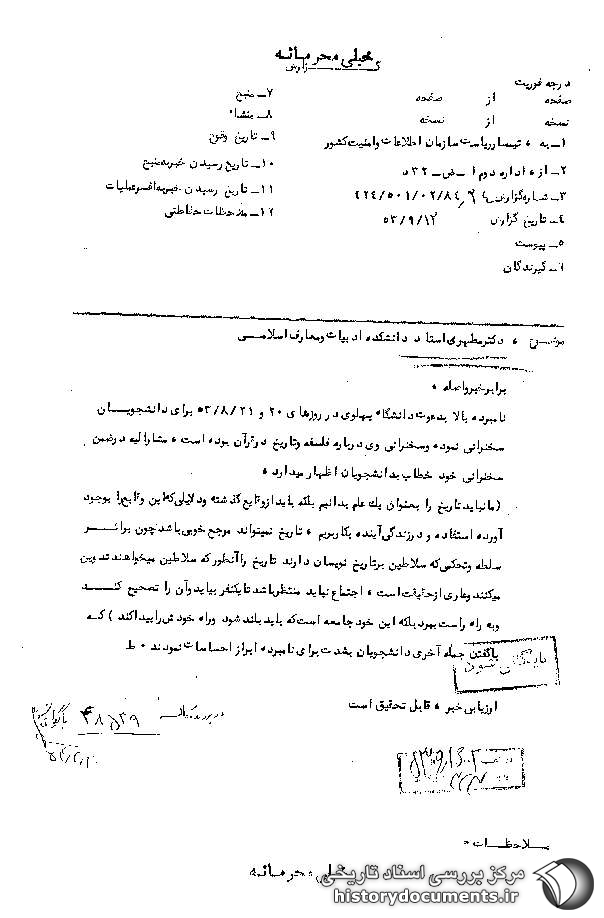 خیلی محرمانه
گزارش
درجه فوریت
صفحه از صفحه
نسخه از نسخه
۱ـ به : تیمسار ریاست سازمان اطلاعات و امنیت کشور
۲ـ از : اداره دوم ا ـ ض ـ ۳۲ د
۳ـ شماره گزارش ۴۲۴/۵۰۱/۰۲/۸۴
۴ـ تاریخ گزارش ۵۳/۹/۱۲
۵ـ پیوست
۶ـ گیرندگان
۷ـ منبع
۸ـ منشاء
۹ـ تاریخ وقوع
۱۰ـ تاریخ رسیدن خبر به منبع
۱۱ـ تاریخ رسیدن خبر به افسر عملیات
۱۲ـ ملاحظات حفاظتی
موضوع : دکتر مطهری استاد دانشکده ادبیات و معارف اسلامی
برابر خبر واصله :
نامبرده بالا بدعوت دانشگاه پهلوی در روزهای ۲۰ و ۵۳/۸/۲۱ برای دانشجویان
سخنرانی نموده و سخنرانی وی درباره فلسفه و تاریخ در قرآن بوده است ، مشارالیه در ضمن
سخنرانی خود خطاب بدانشجویان اظهار میدارد :
(ما نباید تاریخ را بعنوان یك علم بدانیم بلکه باید از وقایع گذشته و دلایلی که این وقایع را بوجود
آورده استفاده و در زندگی آینده بکار بریم ، تاریخ نمیتواند مرجع خوبی باشد چون بر اثر
سلطه و تحکمی که سلاطین بر تاریخ نویسان دارند تاریخ را آنطور که سلاطین میخواهند تدوین
میکنند و عاری از حقیقت است ، اجتماع نباید منتظر باشد تا یکنفر بیاید و آن را تصحیح کند
و به راه راست ببرد بلکه این خود جامعه است که باید بلند شود و راه خودش را پیدا کند ) که
با گفتن جمله آخری دانشجویان بشدت برای نامبرده ابراز احساسات نمودند ۰ ط
بایگانی شود
ارزیابی خبر : قابل تحقیق است
در پرونده کلاسه ۴۸۵۲۹
ملاحظات :
خیلی محرمانه
مرکز بررسی اسناد تاریخی
historydocuments.ir